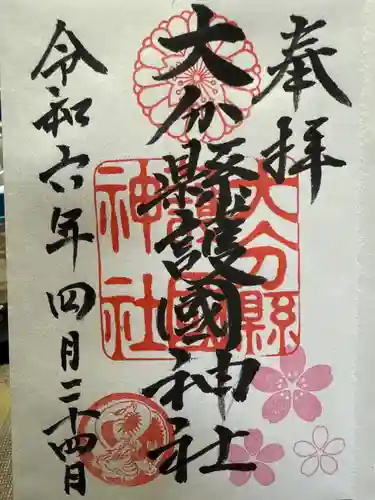 奉拝
大分縣護國神社
令和六年四月二十四日
大分縣
護國
神社